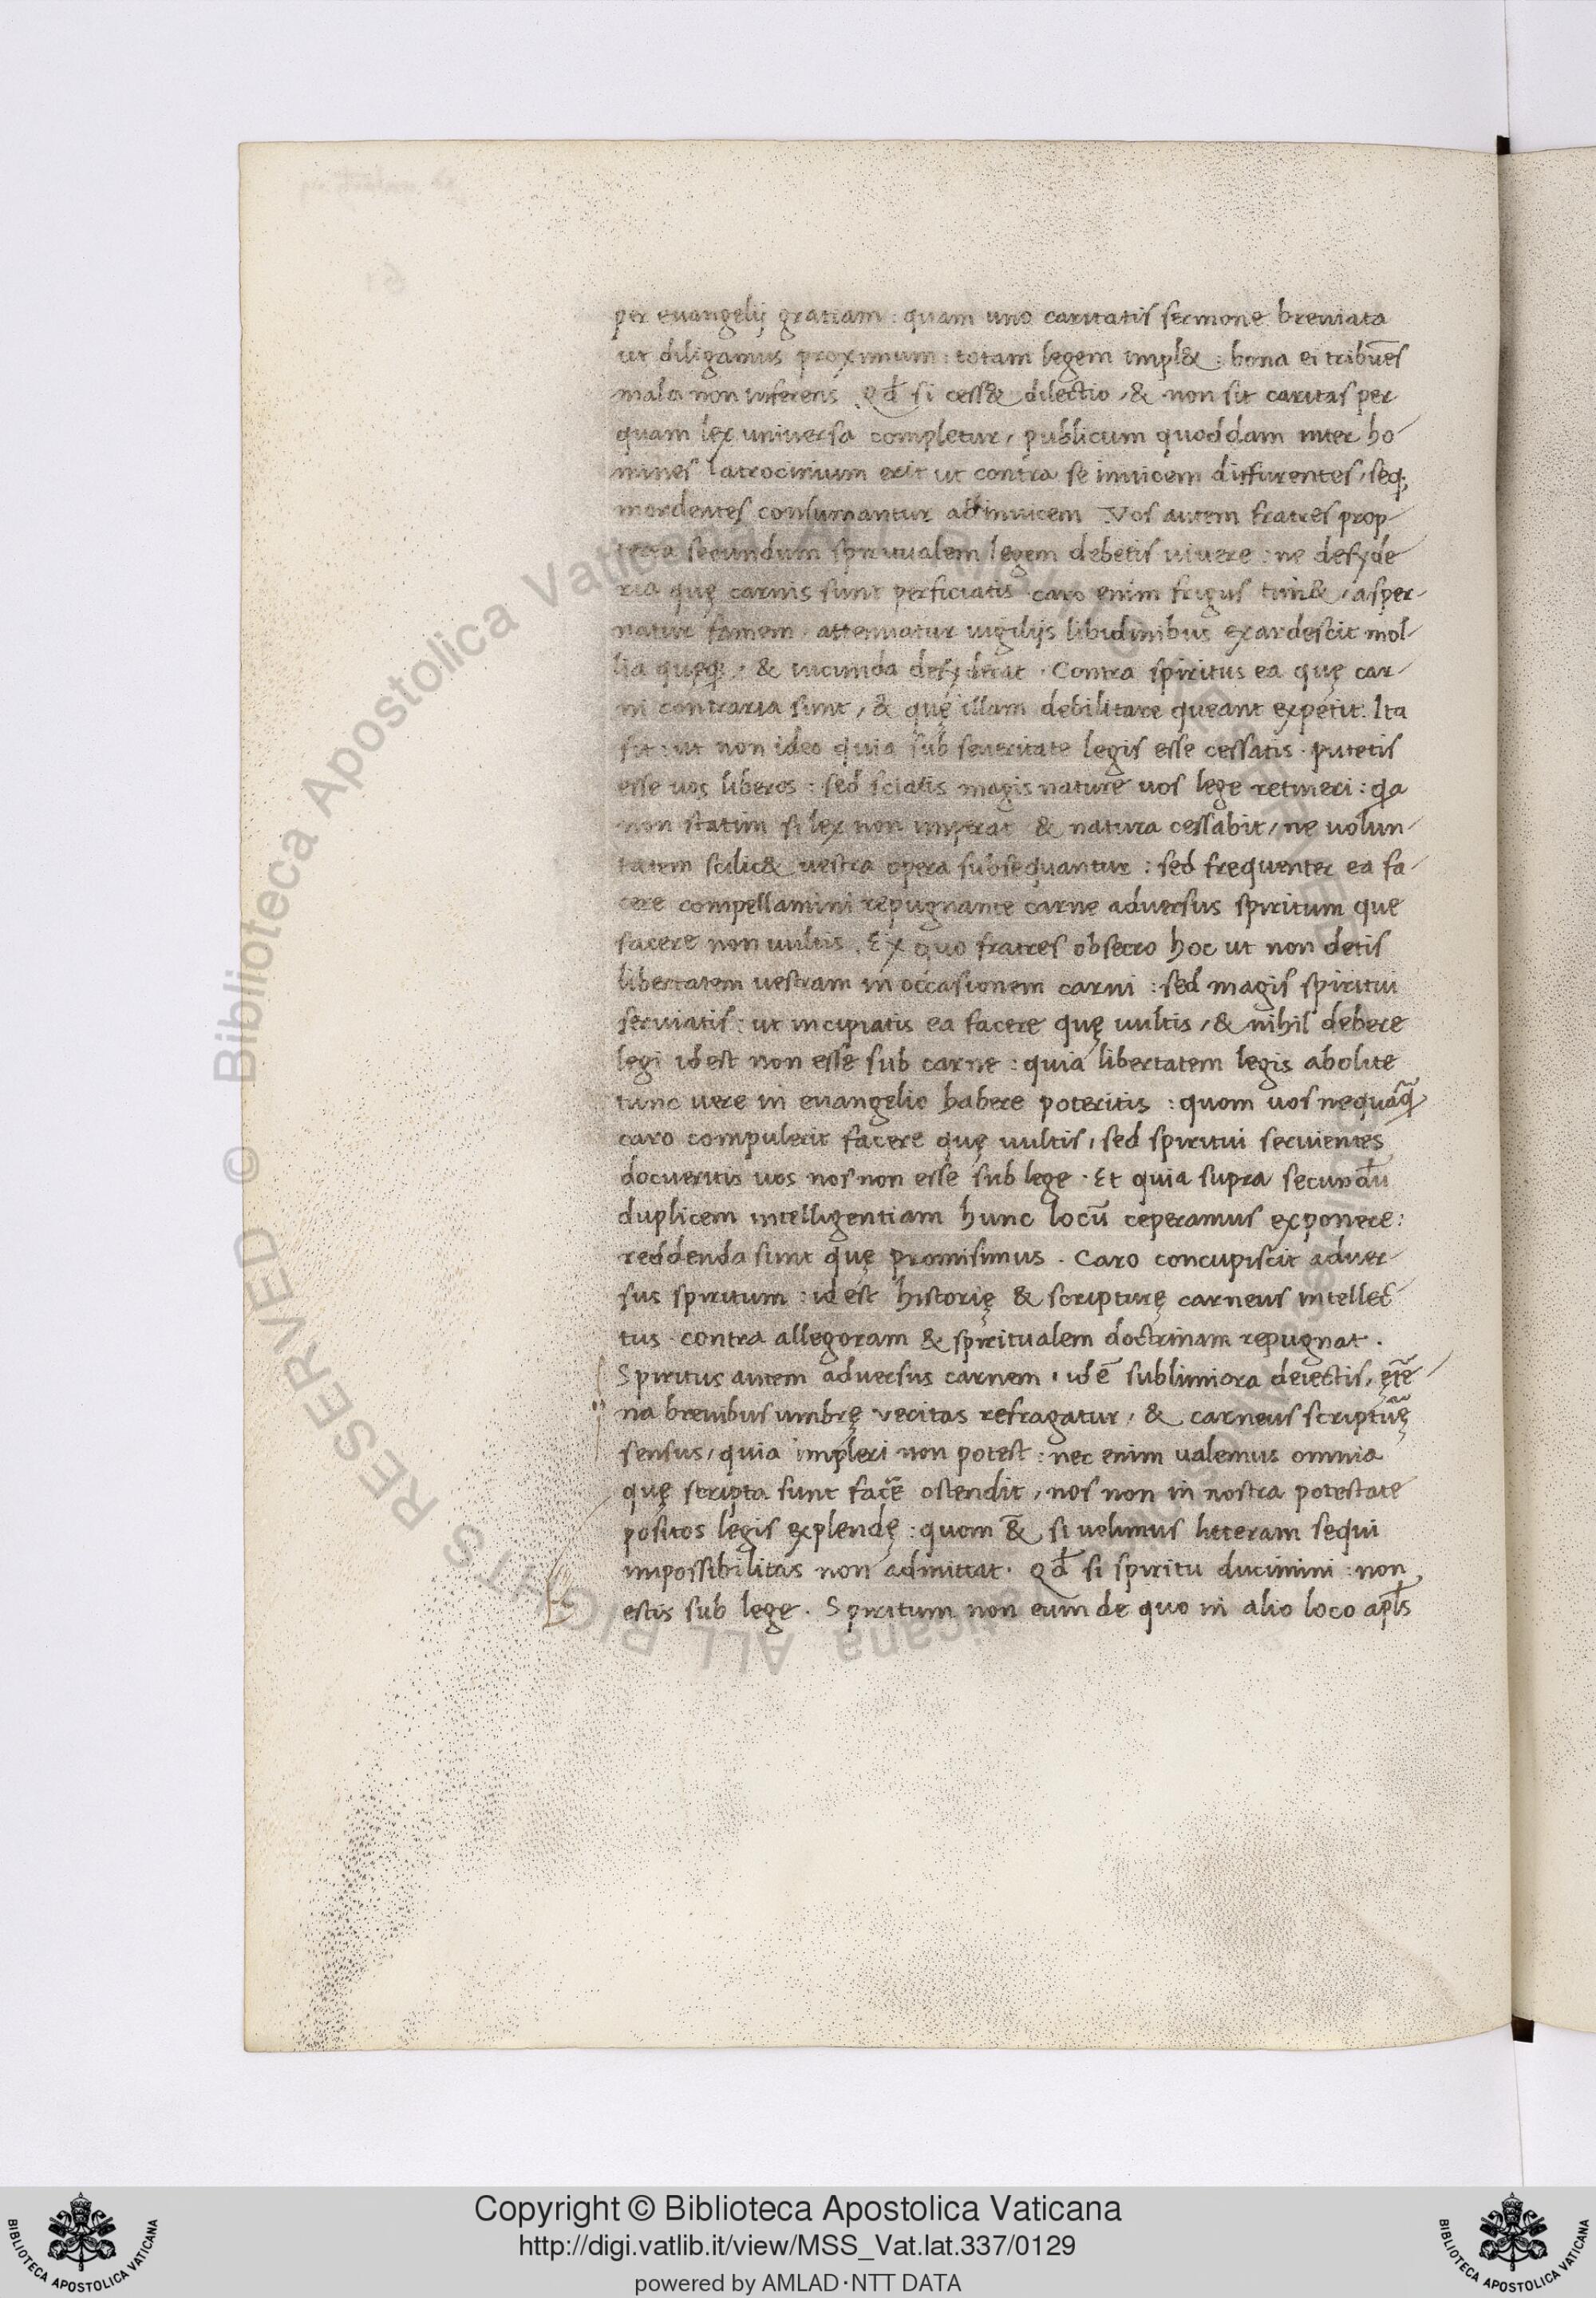 per euangelij gratiam : quam uno caritatis sermone breuiata
ut diligamus proximum : totam legem impl& : bona ei tribuēs
mala non inferens . Qđ si cess& dilectio , & non sit caritas per
quam lex uniuersa completur , publicum quoddam inter ho-
mines latrocinium erit ut contra se inuicem diffurentes , seq;
mordentes consumantur ab inuicem Vos autem fratres prop-
terea secundum spiritualem legem debetis uiuere : ne desyde
ria quę carnis sunt perficiatis caro enim frigus tim& , asper-
natur famem . attenuatur uigilijs libidinibus exardescit mol-
lia quęq; , & iucunda desyderat . Contra spiritus ea quę car-
ni contraria sunt , & quę illam debilitare queant expetit . Ita
fit : ut non ideo quia sub seueritate legis esse cessatis . putetis
esse uos liberos : sed sciatis magis nature uos lege retineri : qa
non statim si lex non imperat & natura cessabit , ne uolun-
tatem scilic& uestra opera subsequantur : sed frequenter ea fa-
cere compellamini repugnante carne aduersus spiritum que
facere non uultis . Ex quo fratres obsecro hoc ut non detis
libertatem uestram in occasionem carni : sed magis spiritui
seruiatis : ut incipiatis ea facere quę uultis , & nihil debere
legi id est non esse sub carne : quia libertatem legis abolite
tunc uere in euangelio habere poteritis : quom uos nequāq̃
caro compulerit facere quę uultis , sed spiritui seruientes
docueritis uos nos non esse sub lege . Et quia supra secundū
duplicem intelligentiam hunc locū ceperamus exponere :
reddenda sunt quę promisimus . Caro concupiscit aduer-
sus spiritum : id est historię & scripturę carneus intellec-
tus . contra allegoram & spiritualem doctrinam repugnat .
Spiritus autem aduersus carnem . id ē sublimiora deiectis , ęt̃e-
na breuibus umbrę ueritas refragatur , & carneus scriptu᷑ę
sensus , quia impleri non potest : nec enim ualemus omnia
quę scripta sunt fac̃e ostendit , nos non in nostra potestate
positos legis explendę : quom &̄ si uelimus litteram sequi
impossibilitas non admittat . Qđ si spiritu ducimini : non
estis sub lege . Spiritum non eum de quo in alio loco apl̃s
Copyright © Biblioteca Apostolica Vaticana
http://digi.vatlib.it/view/MSS_Vat.lat.337/0129
powered by AMLAD·NTT DATA
BIBLIOTECA APOSTOLICA VATICANA
BIBLIOTECA APOSTOLICA VATICANA
© Biblioteca Apostolica Vaticana ALL RIGHTS RESERVED